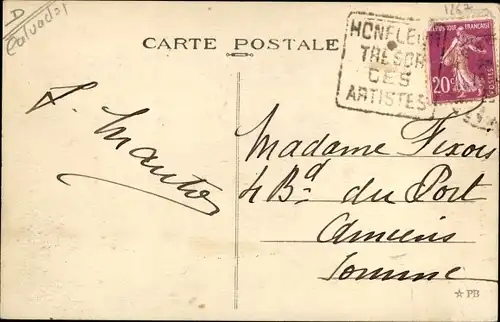 D
Calvados
CARTE POSTALE
HONFLEUR
TRÉSOR
DES
ARTISTES
RÉPUBLIQUE FRANÇAISE
20c
POSTES
Madame Fixois
4 Bd du Port
Amiens
Somme
PB